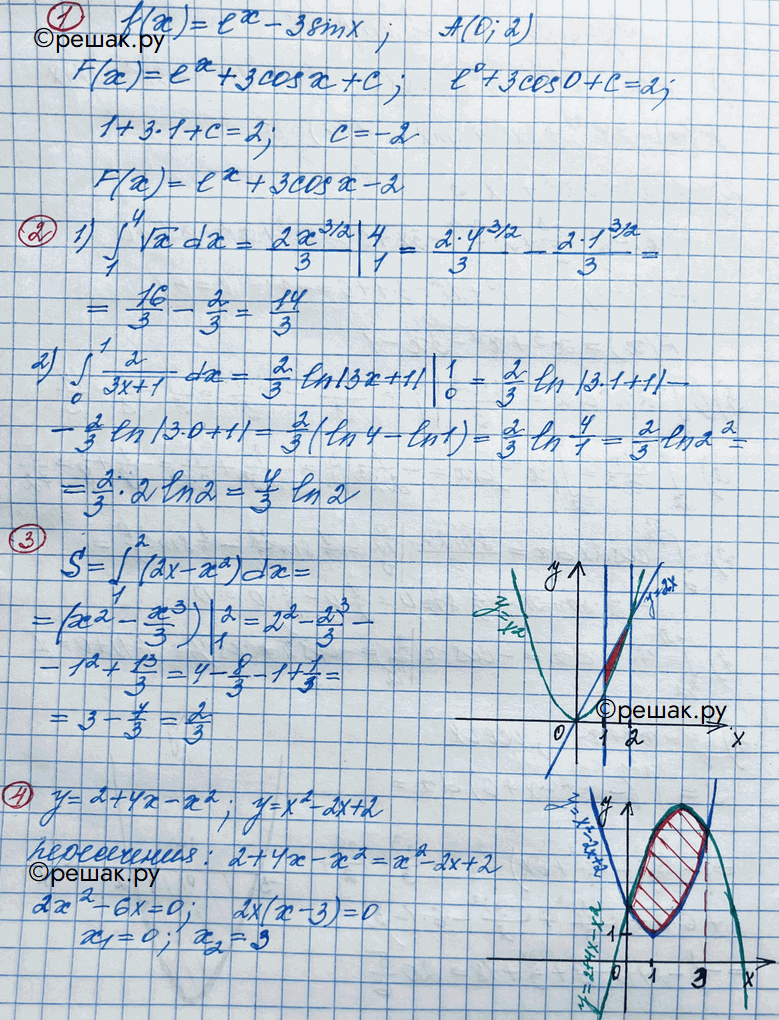 ① f(x) = e^x - 3sinx ; A(0; 2)
©решак.ру
F(x) = e^x + 3cosx + C ; e^0 + 3cos0 + C = 2;
1 + 3·1 + C = 2; C = -2
F(x) = e^x + 3cosx - 2
② 1) ∫₁⁴ √x dx = 2x^(3/2)/3 |₁⁴ = 2·4^(3/2)/3 - 2·1^(3/2)/3 =
= 16/3 - 2/3 = 14/3
2) ∫₀¹ 2/(3x+1) dx = 2/3 ln|3x+1| |₀¹ = 2/3 ln|3·1+1| -
- 2/3 ln|3·0+1| = 2/3 (ln4 - ln1) = 2/3 ln 4/1 = 2/3 ln2² =
= 2/3 · 2 ln2 = 4/3 ln2
③ S = ∫₁² (2x - x²) dx =
= (x² - x³/3) |₁² = 2² - 2³/3 -
- 1² + 1³/3 = 4 - 8/3 - 1 + 1/3 =
= 3 - 7/3 = 2/3
y
y=x²
y=2x
©решак.ру
0 1 2 x
④ y = 2+4x-x² ; y = x²-2x+2
пересечения: 2+4x-x² = x²-2x+2
©решак.ру
2x² - 6x = 0; 2x(x-3) = 0
x₁ = 0 ; x₂ = 3
y
y=x²-2x+2
y=2+4x-x²
1
0 1 3 x